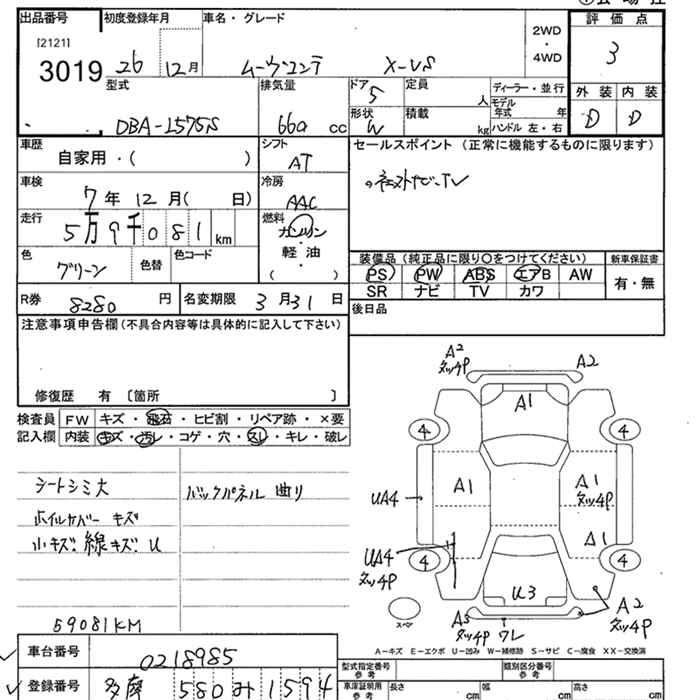 出品番号 初度登録年月 車名・グレード 評価点
[2121]
3019 26 12月 ムーヴコンテ X-VS 2WD・4WD 3
型式 排気量 ドア 5 定員 人 ディーラー・並行 外装 内装
DBA-L575S 660 cc 形状 W 積載 kg モデル年式 年 ハンドル 左・右 D D
車歴 自家用・( ) シフト AT セールスポイント (正常に機能するものに限ります)
車検 7年12月( 日) 冷房 AAC
走行 5万9千081km 燃料 ガソリン・軽油・( )
色 グリーン 色替 色コード
装備品 (純正品に限り○をつけてください) 新車保証書
PS PW ABS エアB AW 有・無
SR ナビ TV カワ
R券 8280円 名変期限 3月31日 後日品
注意事項申告欄(不具合内容等は具体的に記入して下さい)
修復歴 有 〔箇所 〕
検査員 FW キズ・飛石・ヒビ割・リペア跡・×要
記入欄 内装 キズ・汚レ・コゲ・穴・スレ・キレ・破レ
シートシミ大 バックパネル曲り
ホイルカバー キズ
小キズ 線キズ U
59081KM
A2 A2
A1
4 4
A1 A1
UA4
A1
UA4
4 4
U3
A2
A3 ワレ
スペア
A-キズ E-エクボ U-凹み W-補修跡 S-サビ C-腐食 XX-交換済
車台番号 0218985
登録番号 多摩 580 み 1594
型式指定番号 参考 類別区分番号 参考
車庫証明用 参考 長さ cm 幅 cm 高さ cm